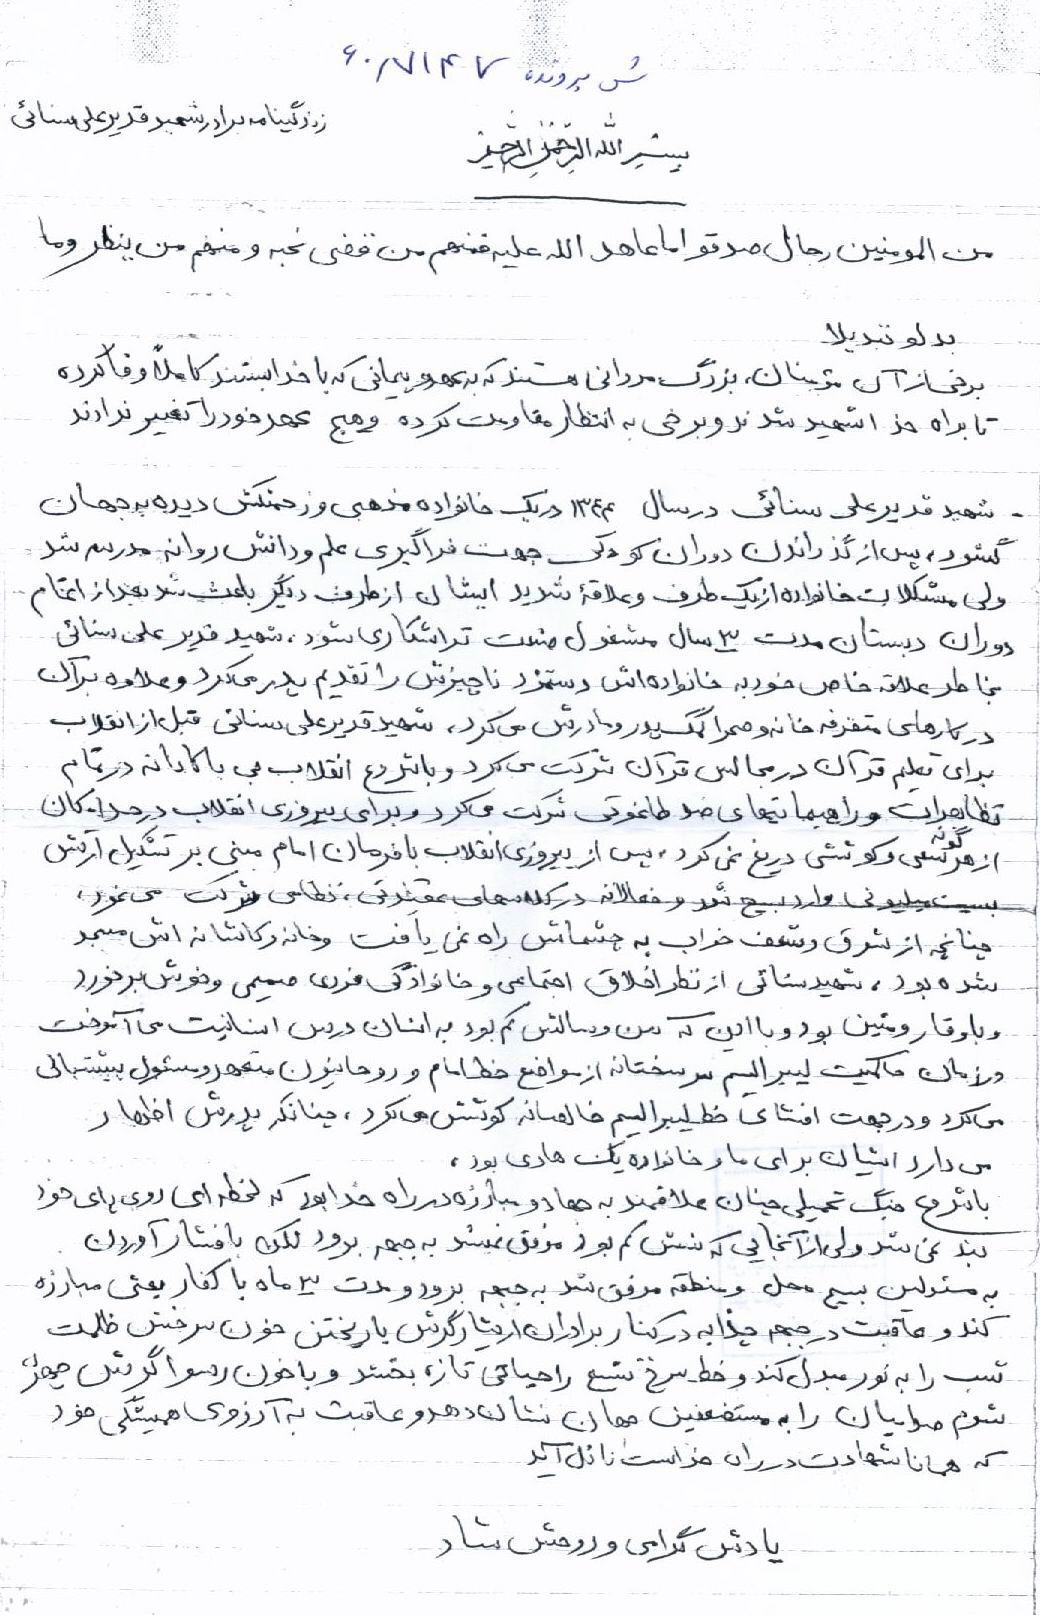 ش پرونده ۶۰۸۷۱۴۷
زندگینامه برادر شهید قدیر علی سنائی
بسم الله الرحمن الرحیم
من المومنین رجال صدقو اما عاهد الله علیه فمنهم من قضی نحبه و منهم من ینظر وما
بدلو تبدیلا
برخی از آن مؤمنان، بزرگ مردانی هستند که به عهد و پیمانی که با خدا بستند کاملاً وفا کرده
تا براه خدا شهید شدند و برخی به انتظار مقاومت کرده و هیچ عهد خود را تغییر ندادند
- شهید قدیر علی سنائی در سال ۱۳۴۴ در یک خانواده مذهبی و زحمتکش دیده به جهان
گشود، پس از گذراندن دوران کودکی جهت فراگیری علم و دانش روانه مدرسه شد
ولی مشکلات خانواده از یک طرف و علاقهٔ شدید ایشان از طرف دیگر باعث شد بعد از اتمام
دوران دبستان مدت ۳ سال مشغول صنعت تراشکاری شود، شهید قدیر علی سنائی
بخاطر علاقه خاص خود به خانواده‌اش دستمزد ناچیزش را تقدیم پدر می‌کرد و علاوه بر آن
در کارهای متفرقه خانه و صحرا کمک پدر و مادرش می‌کرد، شهید قدیر علی سنائی قبل از انقلاب
برای تعلیم قرآن در مجالس قرآن شرکت می‌کرد و با شروع انقلاب بی باکانه در تمام
تظاهرات و راهپیمائیهای ضد طاغوتی شرکت می‌کرد و برای پیروزی انقلاب در حد امکان
از هر گونه سعی و کوششی دریغ نمی کرد، پس از پیروزی انقلاب با فرمان امام مبنی بر تشکیل ارتش
بیست میلیونی وارد بسیج شد و فعالانه در کلاسهای عقیدتی، نظامی شرکت می نمود،
چنانچه از شوق و شعف خواب به چشمانش راه نمی یافت و خانه و کاشانه اش مسجد
شده بود، شهید سنائی از نظر اخلاق اجتماعی و خانوادگی فردی صمیمی و خوش برخورد
و با وقار و متین بود و با این که سن و سالش کم بود به انسان درس انسانیت می آموخت
در زمان حاکمیت لیبرالیسم سرسختانه از مواضع خط امام و روحانیون متعهد و مسئول پشتیبانی
می‌کرد و در جهت افشای خط لیبرالیسم خالصانه کوشش می‌کرد، چنانکه پدرش اظهار
می دارد ایشان برای ما و خانواده یک هادی بود،
با شروع جنگ تحمیلی چنان علاقمند به جهاد و مبارزه در راه خدا بود که لحظه‌ای روی پای خود
بند نمی شد ولی از آنجایی که سنش کم بود موفق نمیشد به جبهه برود لکن با فشار آوردن
به مسئولین بسیج محل و منطقه موفق شد به جبهه برود و مدت ۳ ماه با کفار بعثی مبارزه
کند و عاقبت در جبهه چذابه در کنار برادران ایثارگرش با ریختن خون سرخش ظلمت
شب را به نور مبدل کند و خط سرخ تشیع را حیاتی تازه بخشد و با خون رسواگرش چهرهٔ
شوم صدامیان را به مستضعفین جهان نشان دهد و عاقبت به آرزوی همیشگی خود
که همانا شهادت در راه خداست نائل آید
یادش گرامی و روحش شاد